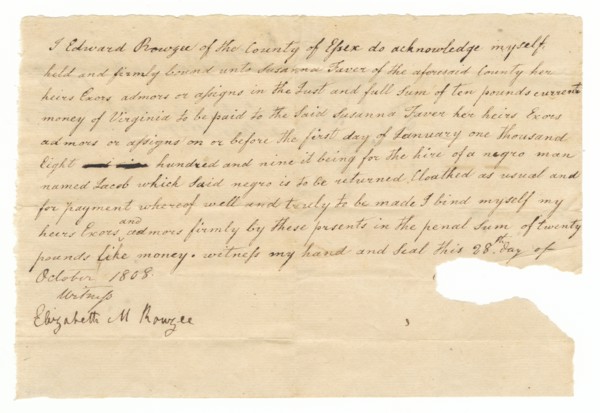 I Edward Rowzee of the County of Essex do acknowledge myself
held and firmly bound unto Susanna Faver of the aforesaid County her
heirs Exors admors or assigns in the Just and full Sum of ten pounds current
money of Virginia to be paid to the Said Susanna Faver her heirs Exors
admors or assigns on or before the first day of January one thousand
Eight hundred and nine it being for the hire of a negro man
named Jacob which Said negro is to be returned Cloathed as usual and
for payment whereof well and truly to be made I bind myself my
heirs Exors and admors firmly by these prsents in the penal Sum of twenty
pounds like money. witness my hand and Seal this 28th day of
October 1808.
Witness
Elizabeth M Rowzee